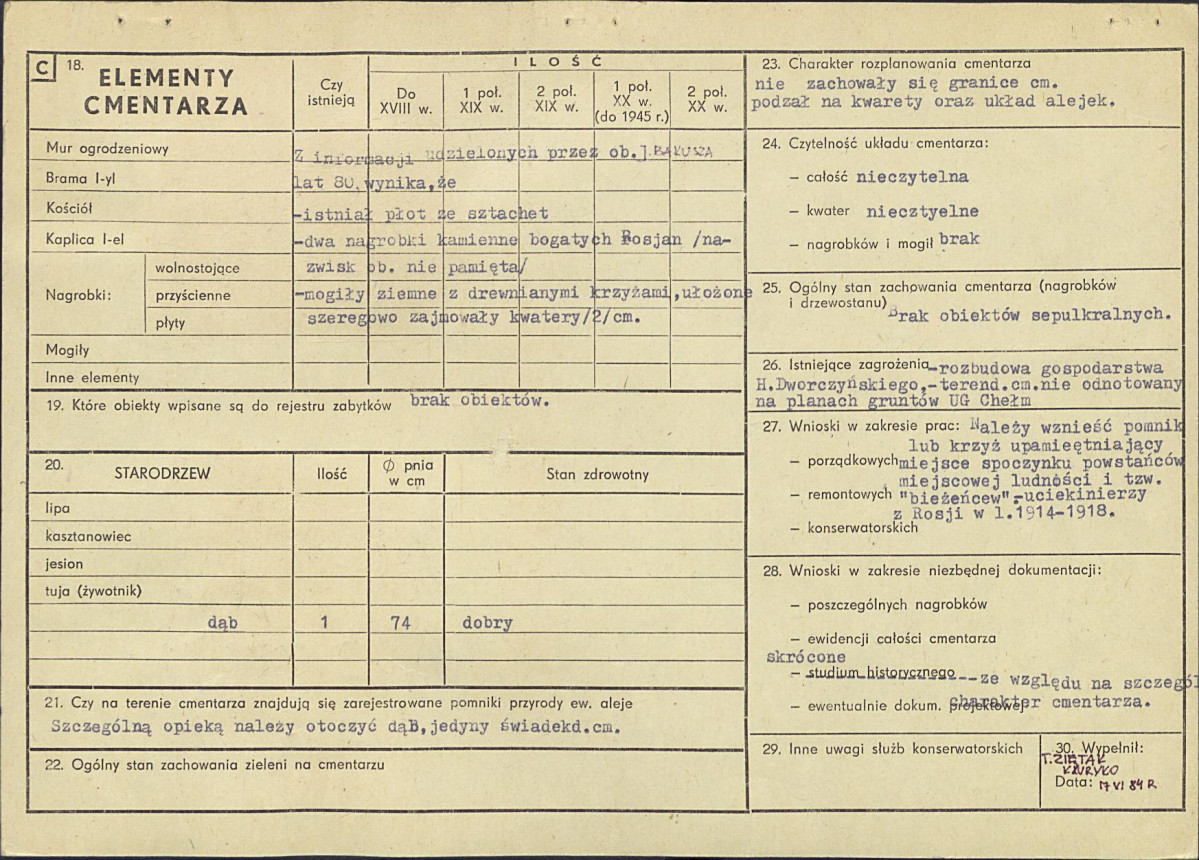 C 18. ELEMENTY
CMENTARZA
Czy
istnieją
I L O Ś Ć
Do
XVIII w.
1 poł.
XIX w.
2 poł.
XIX w.
1 poł.
XX w.
(do 1945 r.)
2 poł.
XX w.
Mur ogrodzeniowy
Brama I-yl
Kościół
Kaplica I-el
Nagrobki:
wolnostojące
przyścienne
płyty
Mogiły
Inne elementy
Z informacji udzielonych przez ob. J. BAŁUSZA
lat 80, wynika,że
-istniał płot ze sztachet
-dwa nagrobki kamienne bogatych Rosjan /na-
zwisk ob. nie pamięta/
-mogiły ziemne z drewnianymi krzyżami,ułożone
szeregowo zajmowały kwatery/2/cm.
19. Które obiekty wpisane są do rejestru zabytków brak obiektów.
20. STARODRZEW
Ilość
Ø pnia
w cm
Stan zdrowotny
lipa
kasztanowiec
jesion
tuja (żywotnik)
dąb 1 74 dobry
21. Czy na terenie cmentarza znajdują się zarejestrowane pomniki przyrody ew. aleje
Szczególną opieką należy otoczyć dąB,jedyny świadekd.cm.
22. Ogólny stan zachowania zieleni na cmentarzu
23. Charakter rozplanowania cmentarza
nie zachowały się granice cm.
podzał na kwarety oraz układ alejek.
24. Czytelność układu cmentarza:
– całość nieczytelna
– kwater niecztyelne
– nagrobków i mogił brak
25. Ogólny stan zachowania cmentarza (nagrobków
i drzewostanu)
Brak obiektów sepulkralnych.
26. Istniejące zagrożenia -rozbudowa gospodarstwa
H.Dworczyńskiego,-terend.cm.nie odnotowany
na planach gruntów UG Chełm
27. Wnioski w zakresie prac: Należy wznieść pomnik
lub krzyż upamieętniający
– porządkowych miejsce spoczynku powstańców
miejscowej ludności i tzw.
– remontowych "bieżeńcew"-uciekinierzy
z Rosji w l.1914-1918.
– konserwatorskich
28. Wnioski w zakresie niezbędnej dokumentacji:
– poszczególnych nagrobków
– ewidencji całości cmentarza
skrócone
– studium historycznego --ze względu na szczegól
– ewentualnie dokum. projektowej charakter cmentarza.
29. Inne uwagi służb konserwatorskich
30. Wypełnił:
T. ZIĘTAK
Data: 17 VI 84 R